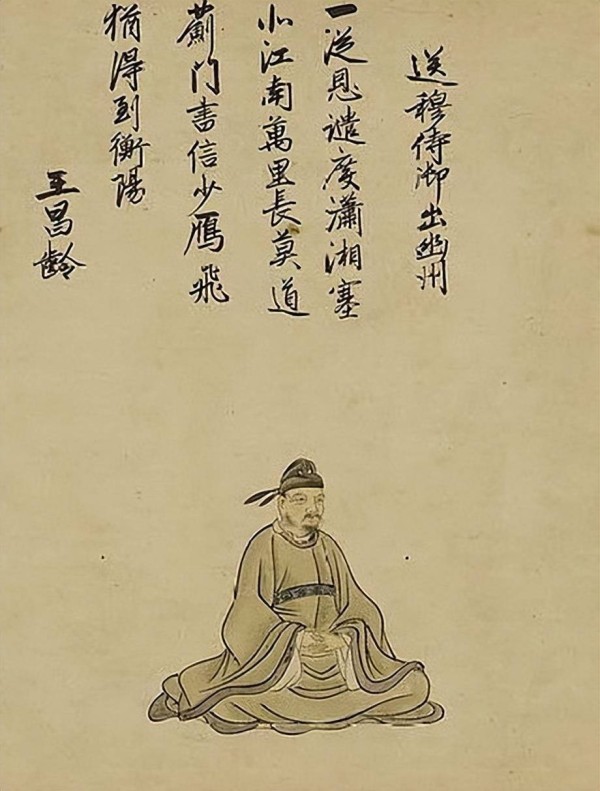 送穆侍御出幽州
一從恩譴度瀟湘塞
北江南萬里長莫道
薊門書信少鴈飛
猶得到衡陽
王昌齡